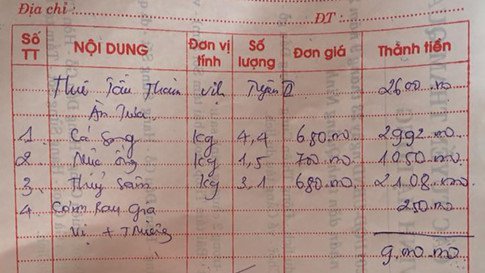 Địa chỉ : ĐT :
Số TT NỘI DUNG Đơn vị tính Số lượng Đơn giá Thành tiền
Thuê Tàu Thăm Vịnh Tuyến II 2600.000
Ăn Trưa
1 Cá Song kg 4,4 680.000 2992.000
2 Mực ống kg 1,5 700.000 1050.000
3 kg 3,1 680.000 2108.000
4 Cơm Rau Gia 250.000
Vị +
9.000.000